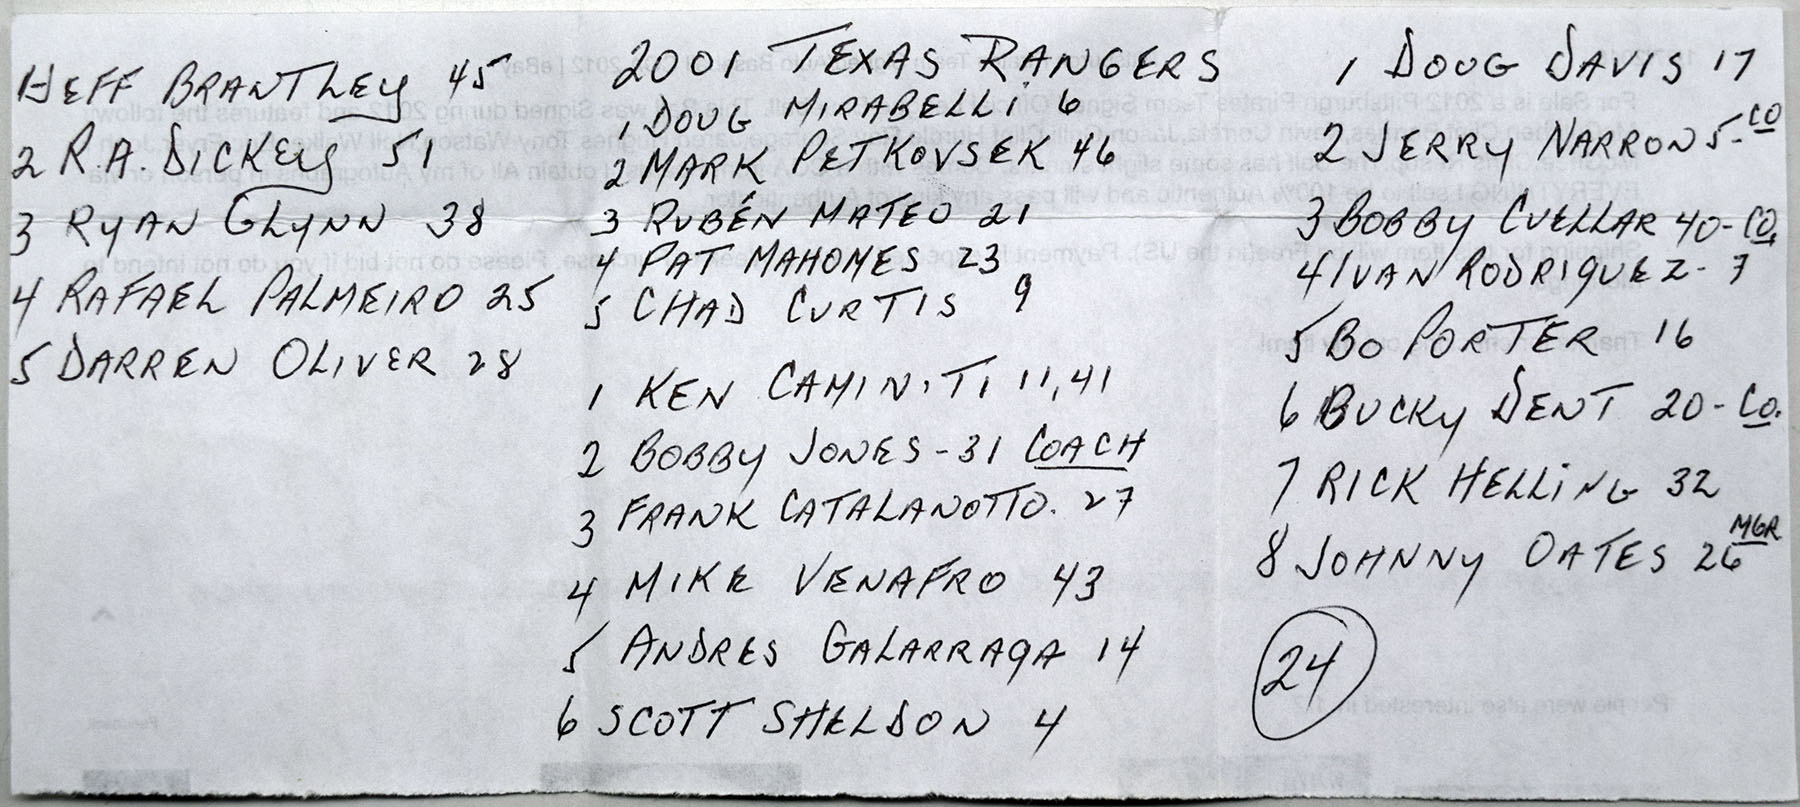 1 JEFF BRANTLEY 45
2 R.A. DICKEY 51
3 RYAN GLYNN 38
4 RAFAEL PALMEIRO 25
5 DARREN OLIVER 28
2001 TEXAS RANGERS
1 DOUG MIRABELLI 6
2 MARK PETKOVSEK 46
3 RUBÉN MATEO 21
4 PAT MAHOMES 23
5 CHAD CURTIS 9
1 KEN CAMINITI 11, 41
2 BOBBY JONES - 31 COACH
3 FRANK CATALANOTTO. 27
4 MIKE VENAFRO 43
5 ANDRES GALARRAGA 14
6 SCOTT SHELDON 4
1 DOUG DAVIS 17
2 JERRY NARRON 5 - CO
3 BOBBY CUELLAR 40 - CO.
4 IVAN RODRIQUEZ - 7
5 BO PORTER 16
6 BUCKY DENT 20 - CO.
7 RICK HELLING 32
8 JOHNNY OATES 26 MGR
24